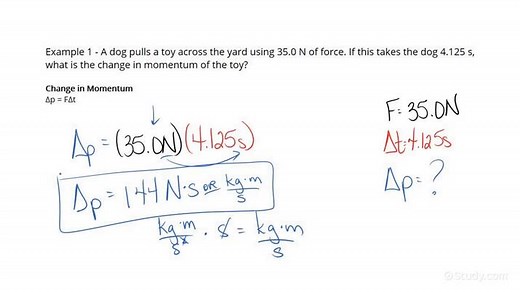 Example 1 - A dog pulls a toy across the yard using 35.0 N of force. If this takes the dog 4.125 s,
what is the change in momentum of the toy?
Change in Momentum
Δp = FΔt
Δp = (35.0N)(4.125s)
Δp = 144 N·s OR kg·m/s
kg·m/s² · s = kg·m/s
F: 35.0N
Δt: 4.125s
Δp = ?
Study.com